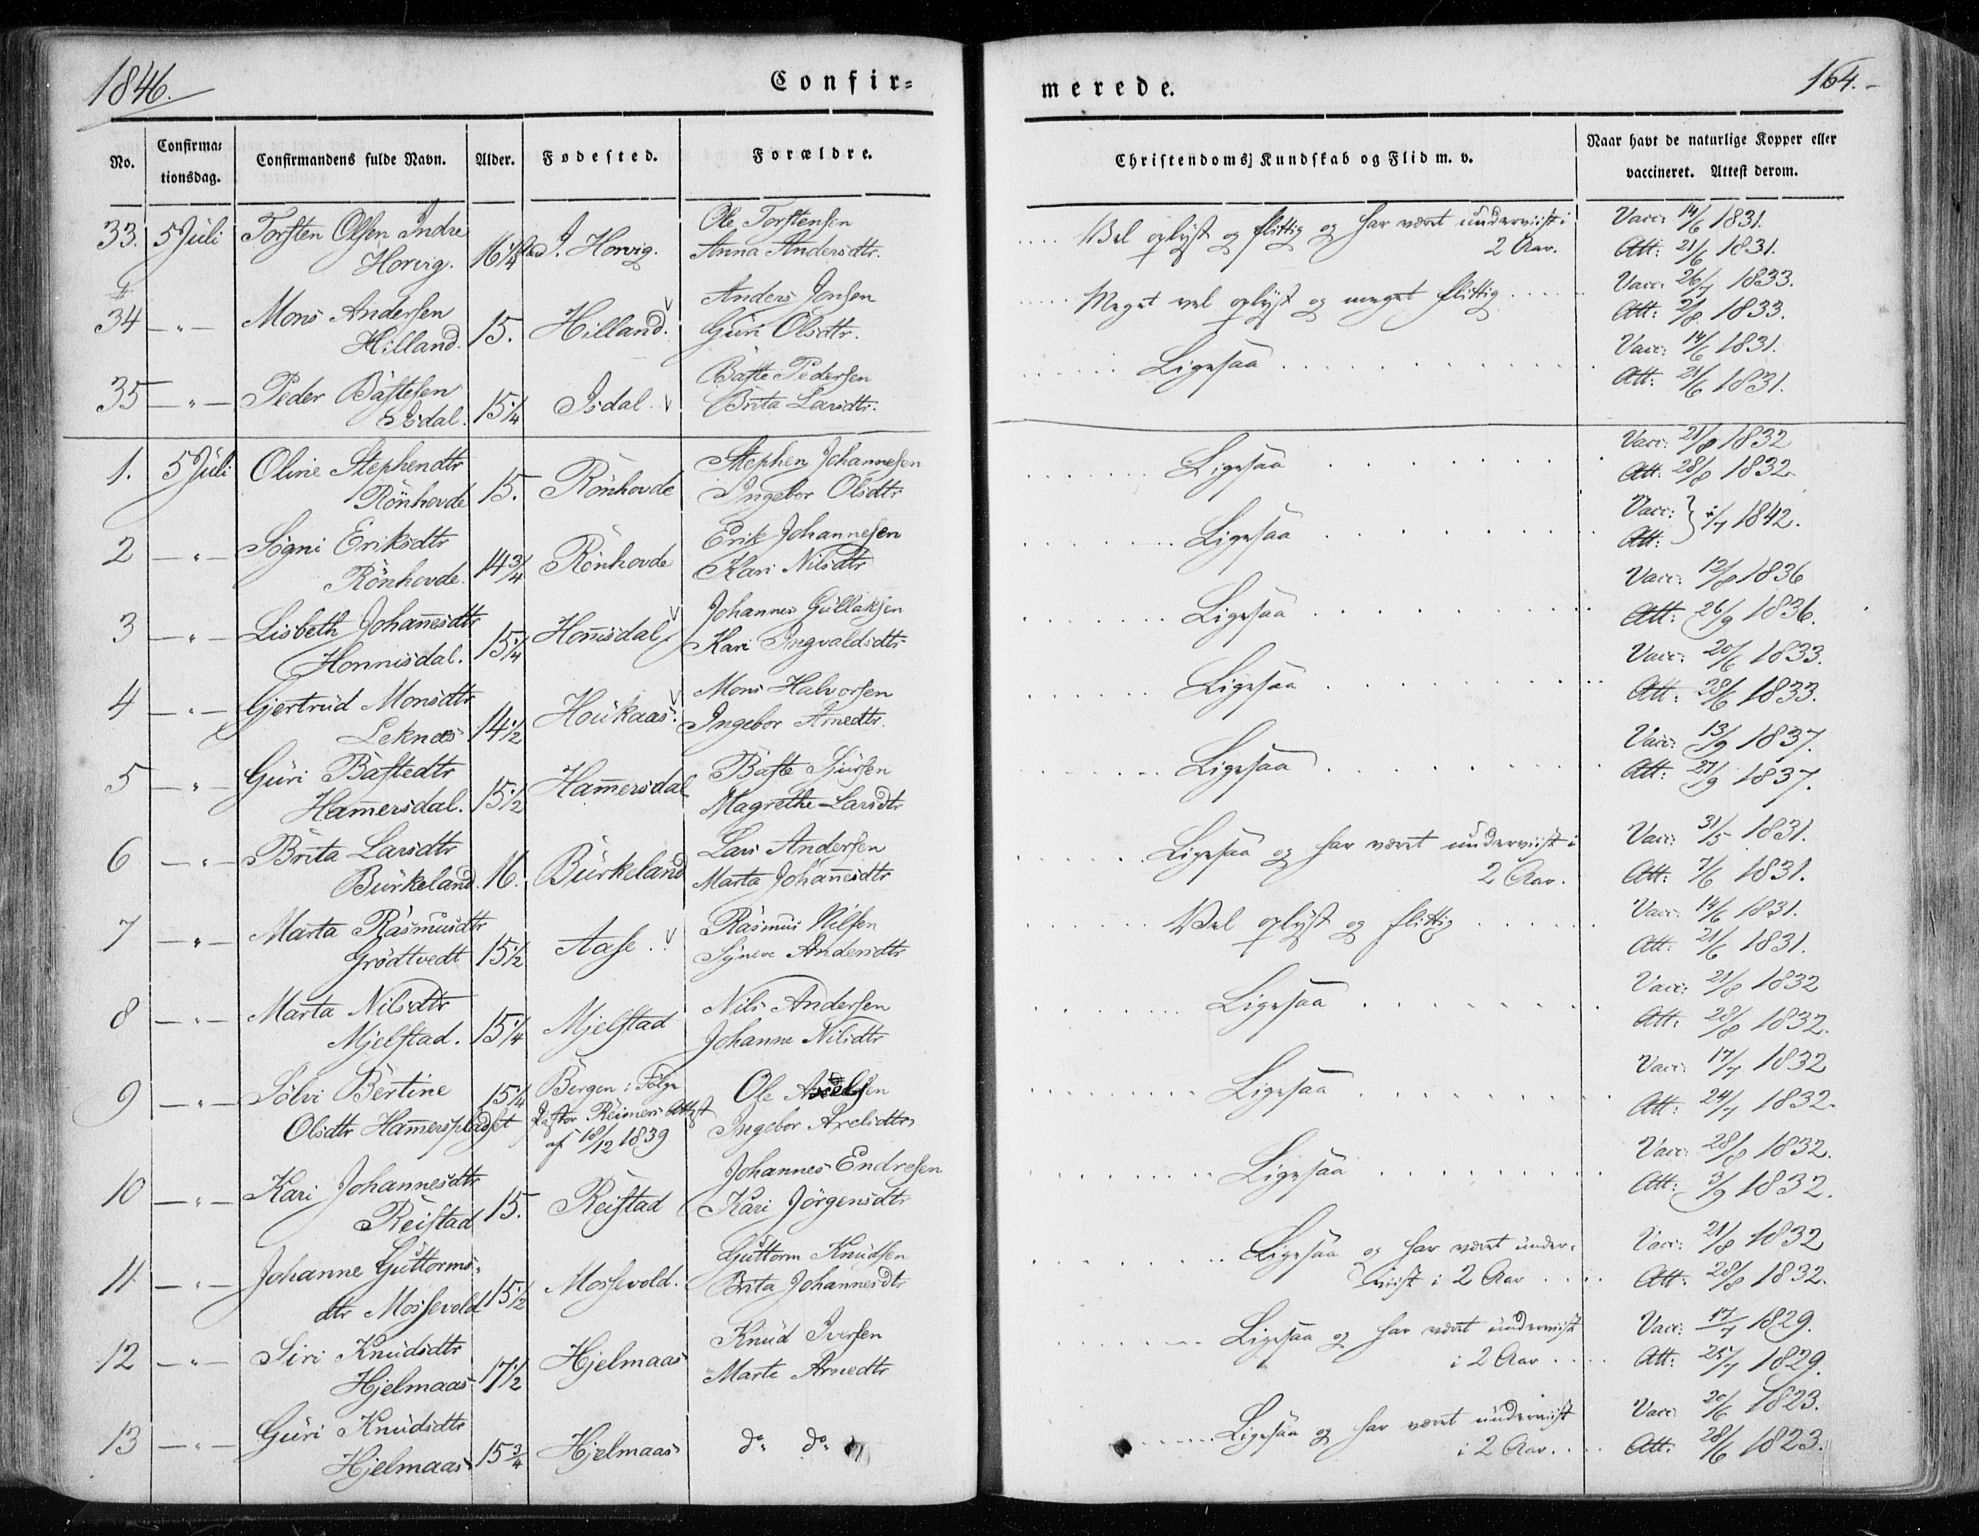 1846.
Confir=
merede.
164.
No.
Confirma=
tionsdag.
Confirmandens fulde Navn.
Alder.
Fødested.
Forældre.
Christendoms Kundskab og Flid m. v.
Naar havt de naturlige Kopper eller
vaccineret. Attest derom.
33. 5 Juli Torsten Olsen Indre 16 1/4 I. Horvig. Ole Torstensen Vel oplyst og flittig og har været underviist i Vacc: 14/6 1831.
Horvig. Anna Andersdtr. 2 Aar. Att: 21/6 1831.
34 — " — Mons Andersen 15. Hilland. Anders Jensen Meget vel oplyst og meget flittig Vacc: 26/7 1833.
Hilland. Guri Olsdtr. Att: 2/8 1833.
35 — " — Peder Baftesen 15 1/4 Isdal. Bafte Pedersen Ligesaa Vacc: 14/6 1831.
Isdal. Brita Larsdtr. Att: 21/6 1831.
1. 5 Juli Oline Stephendtr 15. Rönhovde Stephen Johannesen Ligesaa Vacc: 21/8 1832
Rönhovde Ingebor Olsdtr Att: 28/8 1832.
2 — " — Sögni Eriksdtr 14 3/4 Rönhovde Erik Johannesen Ligesaa Vacc: /7 1842.
Rönhovde. Kari Nilsdtr Att:
3 — " — Lisbeth Johan̄esdtr 15 1/4 Hon̄isdal Johannes Gullaksen Ligesaa Vacc: 12/8 1836
Honnisdal. Kari Ingvaldsdtr Att: 26/9 1836.
4 — " — Gjertrud Monsdtr 14 1/2 Houkaas. Mons Halvorsen Ligesaa Vacc: 20/6 1833.
Leknes Ingebor Arnedtr. Att: 28/6 1833.
5 — " — Guri Baftedtr 15 1/2 Ham̄ersdal Bafte Sjursen Ligesaa Vacc: 13/9 1837.
Ham̄ersdal. Magrethe Larsdtr Att: 27/9 1837.
6 — " — Brita Larsdtr 16. Burkeland Lars Andersen Ligesaa og har været underviist i Vacc: 31/5 1831.
Burkeland. Marta Johan̄esdtr 2 Aar. Att: 7/6 1831.
7 — " — Marta Rasmusdtr 15 1/2 Aase Rasmus Nilsen Vel oplyst og flittig Vacc: 14/6 1831.
Grödtvedt Syneve Andersdtr Att: 21/6 1831.
8 — " — Marta Nilsdtr 15 1/4 Mjelstad Nils Andersen Ligesaa Vacc: 21/8 1832
Mjelstad. Johanne Nilsdtr Att: 28/8 1832.
9 — " — Sølvi Bertine 15 1/4 Bergen i Følge Ole Ligesaa Vacc: 17/7 1832
Olsdtr Ham̄erspladset Pastor Reimers Attest Ingebor Axelsdtr Att: 24/7 1832.
af 18/12 1839
10 — " — Kari Johannesdtr 15. Reistad Johannes Endresen Ligesaa Vacc: 28/8 1832.
Reistad Kari Jörgensdtr Att: 3/9 1832.
11 — " — Johanne Guttorms= 15 1/2 Mossevold. Guttorm Knudsen Ligesaa og har været under= Vacc: 21/8 1832
dtr Mossevold Brita Johannesdt viist i 2 Aar Att: 28/8 1832.
12 — " — Siri Knudsdtr 17 1/2 Hjelmaas Knud Iversen Ligesaa og har været underviist Vacc: 17/7 1829.
Hjelmaas Marte Arnedtr i 2 Aar Att: 25/7 1829.
13 — " — Guri Knudsdtr 15 3/4 Hjelmaas do do Ligesaa og har været underviist Vacc: 20/6 1823.
Hjelmaas i 2 Aar. Att: 28/6 1823.